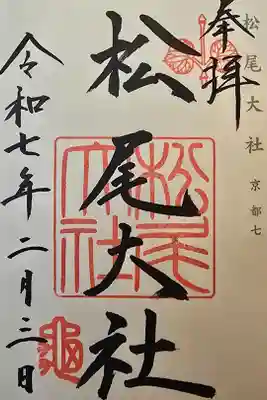 松尾大社 京都七
奉拝
松尾大社
令和七年二月三日
松尾大社
亀